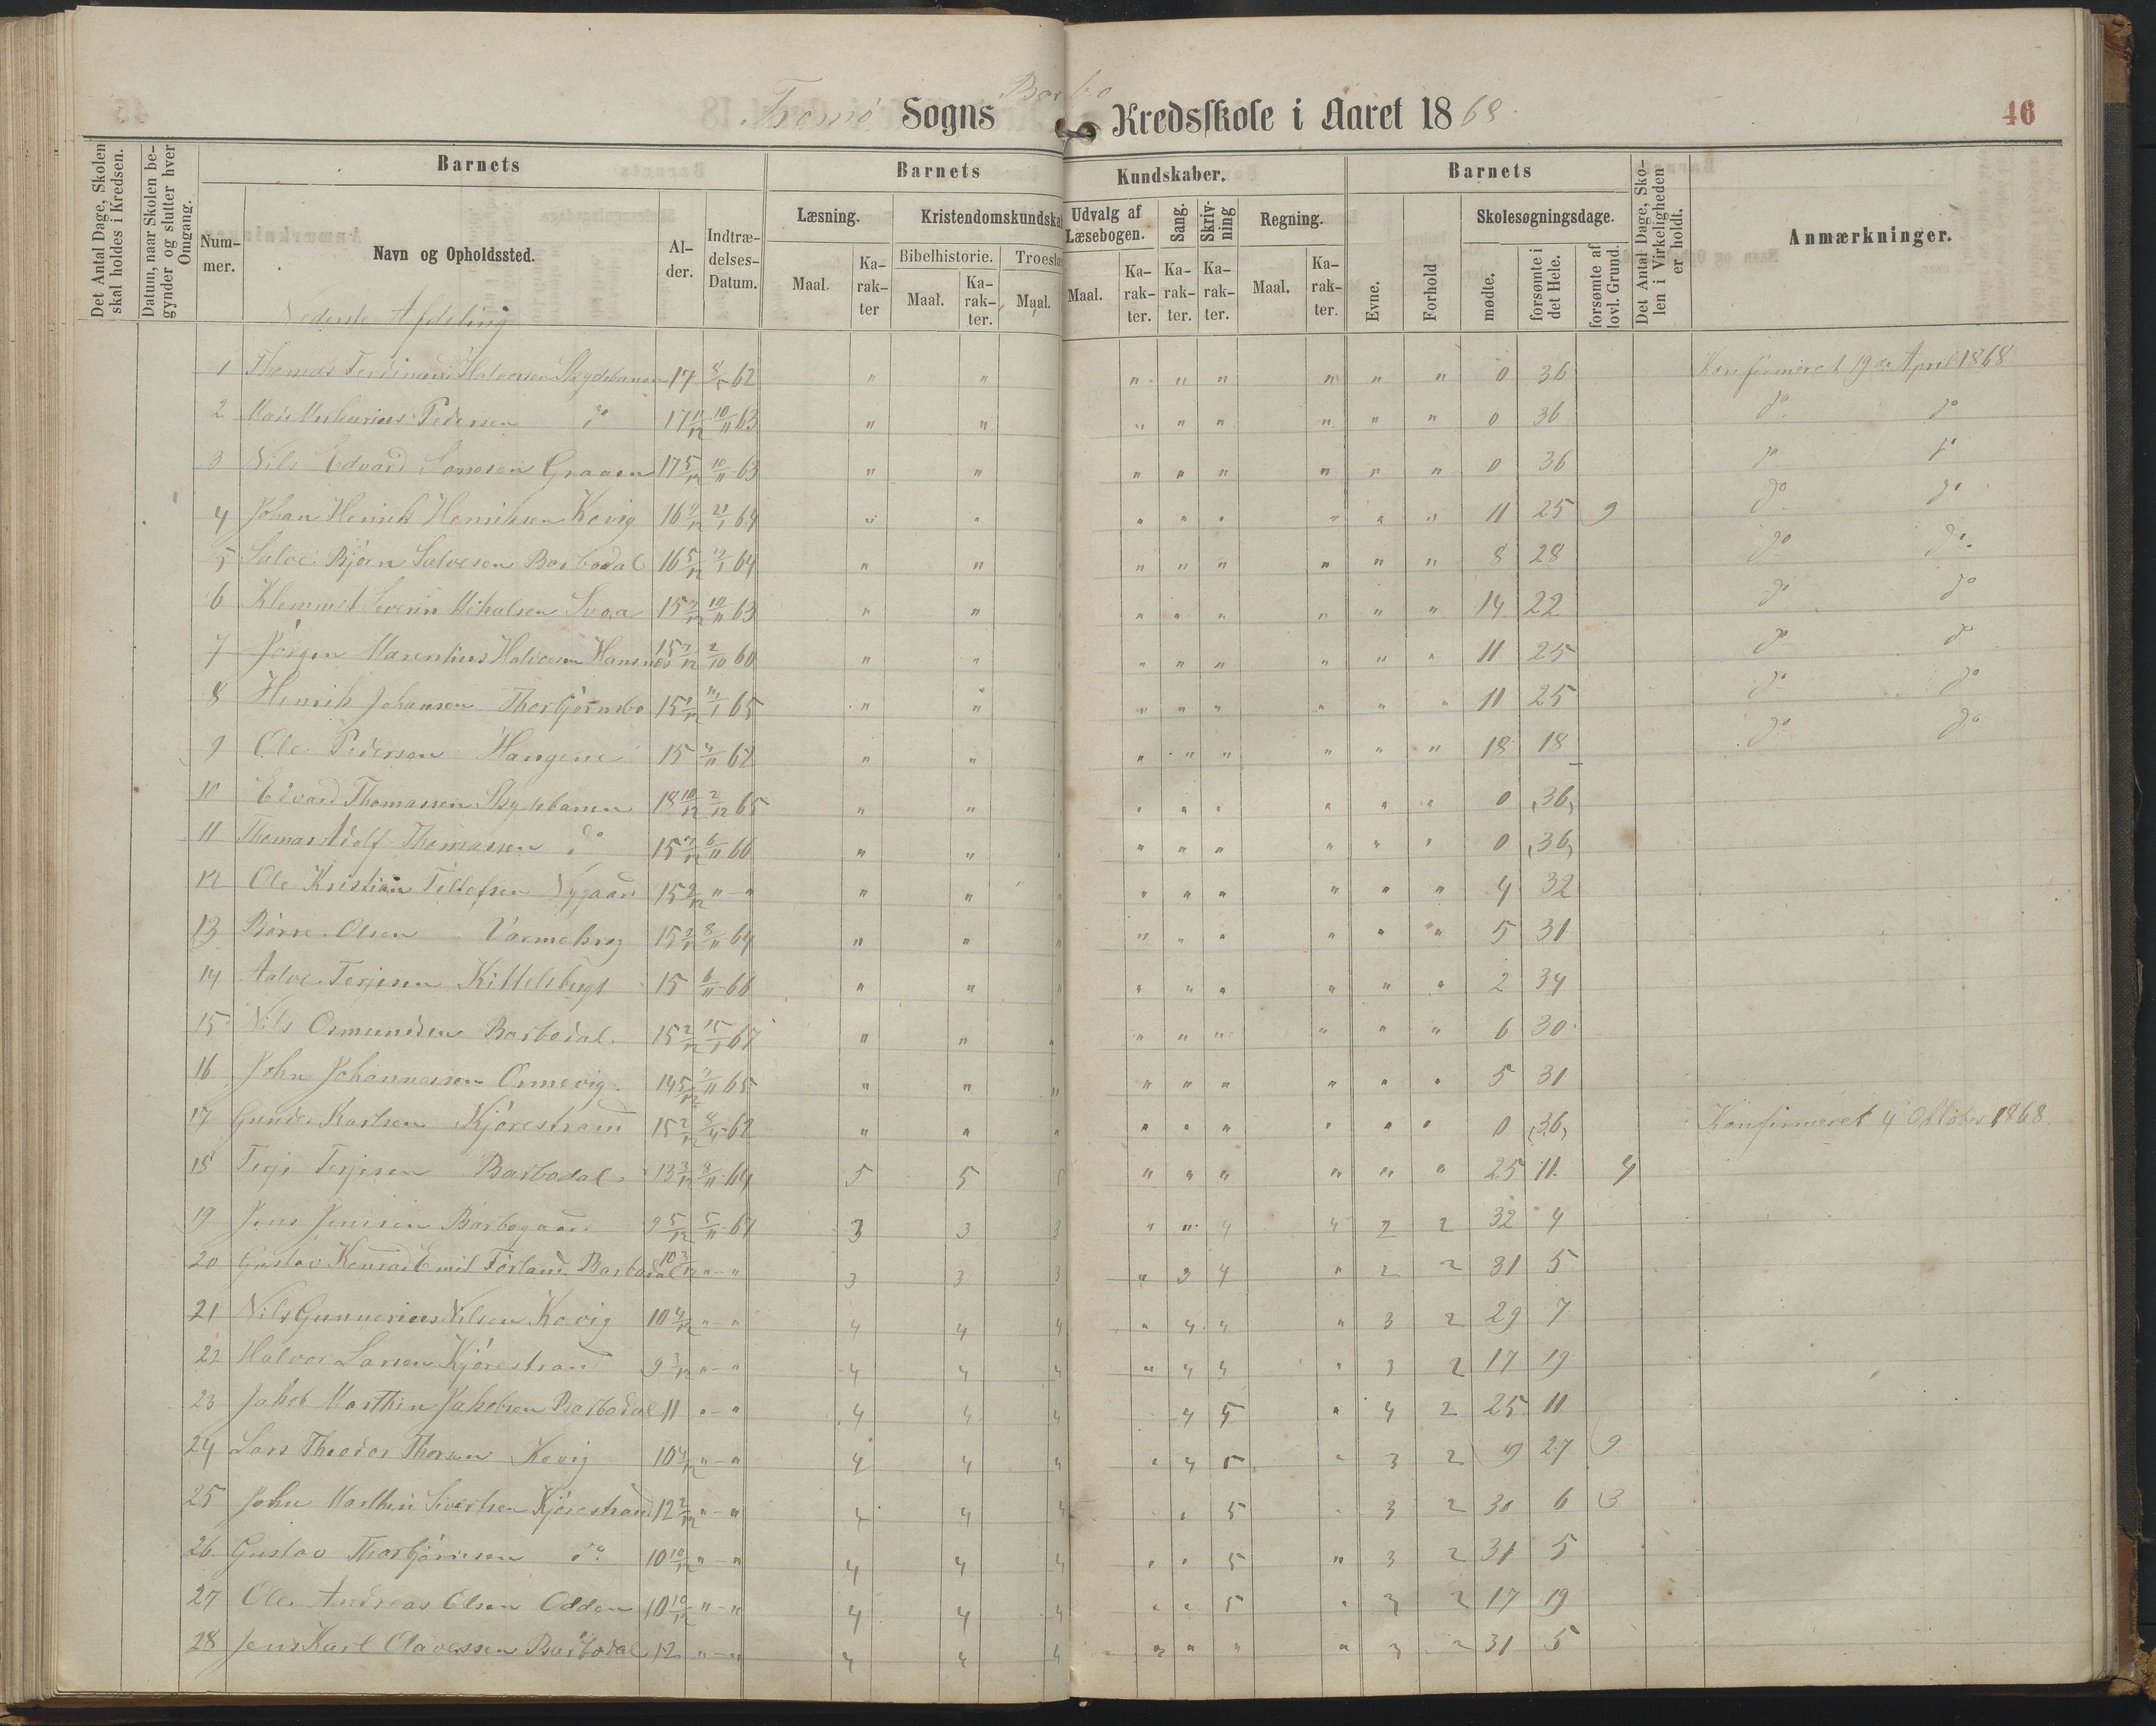 Barbo
Tromø Sogns Kredsskole i Aaret 1868.
46
Det Antal Dage, Skolen skal holdes i Kredsen.
Datum, naar Skolen begynder og slutter hver Omgang.
Barnets
Barnets
Kundskaber.
Barnets
Det Antal Dage, Skolen i Virkeligheden er holdt.
Anmærkninger.
Nummer.
Navn og Opholdssted.
Alder.
Indtrædelses-Datum.
Læsning.
Kristendomskundskab
Udvalg af Læsebogen.
Sang.
Skrivning
Regning.
Evne.
Forhold
Skolesøgningsdage.
Bibelhistorie.
Troeslæ
Maal.
Karakter
Maal.
Karakter.
Maal.
Maal.
Karakter.
Karakter.
Karakter.
Maal.
Karakter.
mødte.
forsømte i det Hele.
forsømte af lovl. Grund.
Nederste Afdeling
1 Thomas Ferdinand Halvorsen Skydebanen 17 8/5 62 " " " " " " " " 0 36 Konfirmeret 19de April 1868
2 Mads Merkurius Pedersen do 17 11/12 10/11 63 " " " " " " " " 0 36 do do
3 Nils Edvard Sørensen Graaen 17 5/12 10/11 63 " " " " " " " " 0 36 do do
4 Johan Henrik Henriksen Kovig 16 9/12 21/1 64 " " " " " " " " 11 25 9 do do
5 Salve Bjørn Salvesen Barbodal 16 5/12 12/1 64 " " " " " " " " 8 28 do do
6 Klemmet Severin Mikalsen Svaa 15 7/12 10/11 63 " " " " " " " " 14 22 do do
7 Jørgen Marentius Halvorsen Hansnes 15 7/12 2/10 60 " " " " " " " " 11 25 do do
8 Henrik Johansen Thorbjørnsbo 15 9/12 14/1 65 " " " " " " " " 11 25 do do
9 Ole Pedersen Haugene 15 4/11 62 " " " " " " " " 18 18 do do
10 Edvard Thomassen Skydebanen 18 10/12 2/12 65 " " " " " " " " 0 (36)
11 Thomas Adolf Thomassen do 15 7/12 6/11 66 " " " " " " " " 0 (36)
12 Ole Kristian Tellefsen Nygaard 15 2/12 " - " " " " " " " " " 4 32
13 Børre Olsen Varmekrog 15 2/12 8/11 64 " " " " " " " " 5 31
14 Aalve Terjesen Kittelsbugt 15 6/11 66 " " " " " " " " 2 34
15 Nils Osmundsen Barbodal 15 2/12 15/1 67 " " " " " " " " 6 30
16 John Johannessen Ormevig 14 5/12 7/11 65 " " " " " " " " 5 31
17 Gunder Karlsen Kjørestrand 15 2/12 8/4 62 " " " " " " " " 0 (36) Konfirmeret 4 Oktober 1868.
18 Terje Terjesen Barbodal 13 3/12 8/11 64 5 5 5 " " " " " " 25 11 4
19 Jens Jensen Barbogaard 9 5/12 5/11 67 3 3 3 " " 4 4 2 2 32 4
20 Gustav Konrad Emil Førland Barbodal 10 3/12 " - " 3 3 3 " 3 4 " 2 2 31 5
21 Nils Gunnerius Nilsen Kovig 10 4/12 " - " 4 4 4 " 4 4 " 3 2 29 7
22 Halvor Larsen Kjørestrand 9 3/12 " - " 4 4 4 " 4 4 " 3 2 17 19
23 Jakob Marthin Jakobsen Barbodal 11 " - " 4 4 4 4 5 " 4 2 25 11
24 Lars Theodor Thorsen Kovig 10 4/12 " - " 4 4 4 " 4 5 " 3 2 9 27 9
25 John Marthin Sivertsen Kjørestrand 12 2/12 " - " 4 4 4 " 5 " 3 2 30 6 3
26 Gustav Thorbjørnsen do 10 10/12 " - " 4 4 4 " " 5 " 3 2 31 5
27 Ole Andreas Olsen Odden 10 10/12 " - " 4 4 4 " " 5 " 3 2 17 19
28 Jens Karl Olavessen Barbodal 12 " - " 4 4 4 " " " " 3 2 31 5